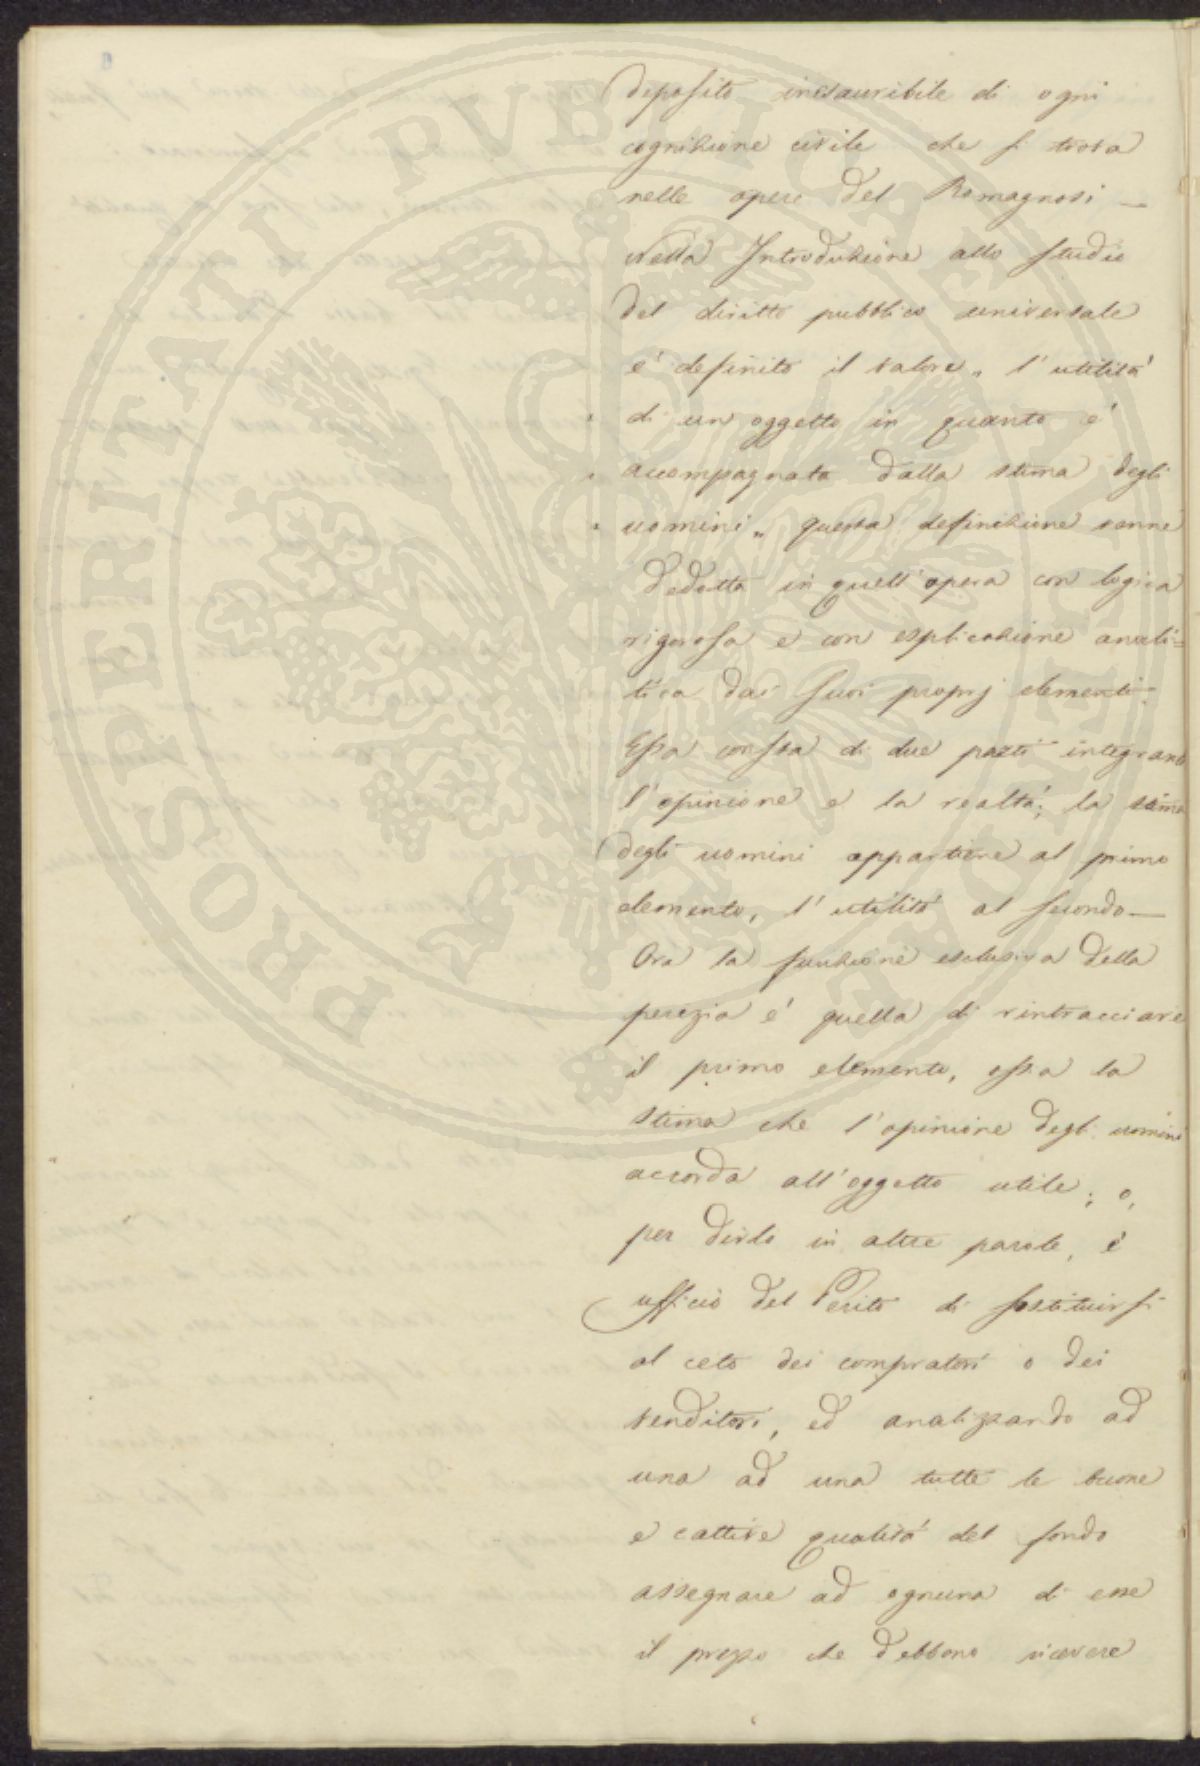 PROSPERITATI PVBLICAE AVGENDAE
deposito inesauribile di ogni
cognizione civile che si trova
nelle opere del Romagnosi —
Nella Introduzione allo studio
del diritto pubblico universale
e' definito il valore „ l'utilità
„ di un oggetto in quanto e'
„ accompagnata dalla stima degli
„ uomini „ questa definizione venne
dedotta in quell'opera con logica
rigorosa e con esplicazione anali=
tica dai suoi proprj elementi.
Essa consta di due parti integranti
l'opinione e la realtà; la stima
degli uomini appartiene al primo
elemento, l'utilità al secondo —
Ora la funzione esclusiva della
perizia e' quella di rintracciare
il primo elemento, ossia la
stima che l'opinione degli uomini
accorda all'oggetto utile; o,
per dirlo in altre parole, è
ufficio del Perito di sostituirsi
al ceto dei compratori o dei
venditori, ed analizzando ad
una ad una tutte le buone
e cattive qualità del fondo
assegnare ad ognuna di esse
il prezzo che debbono ricevere